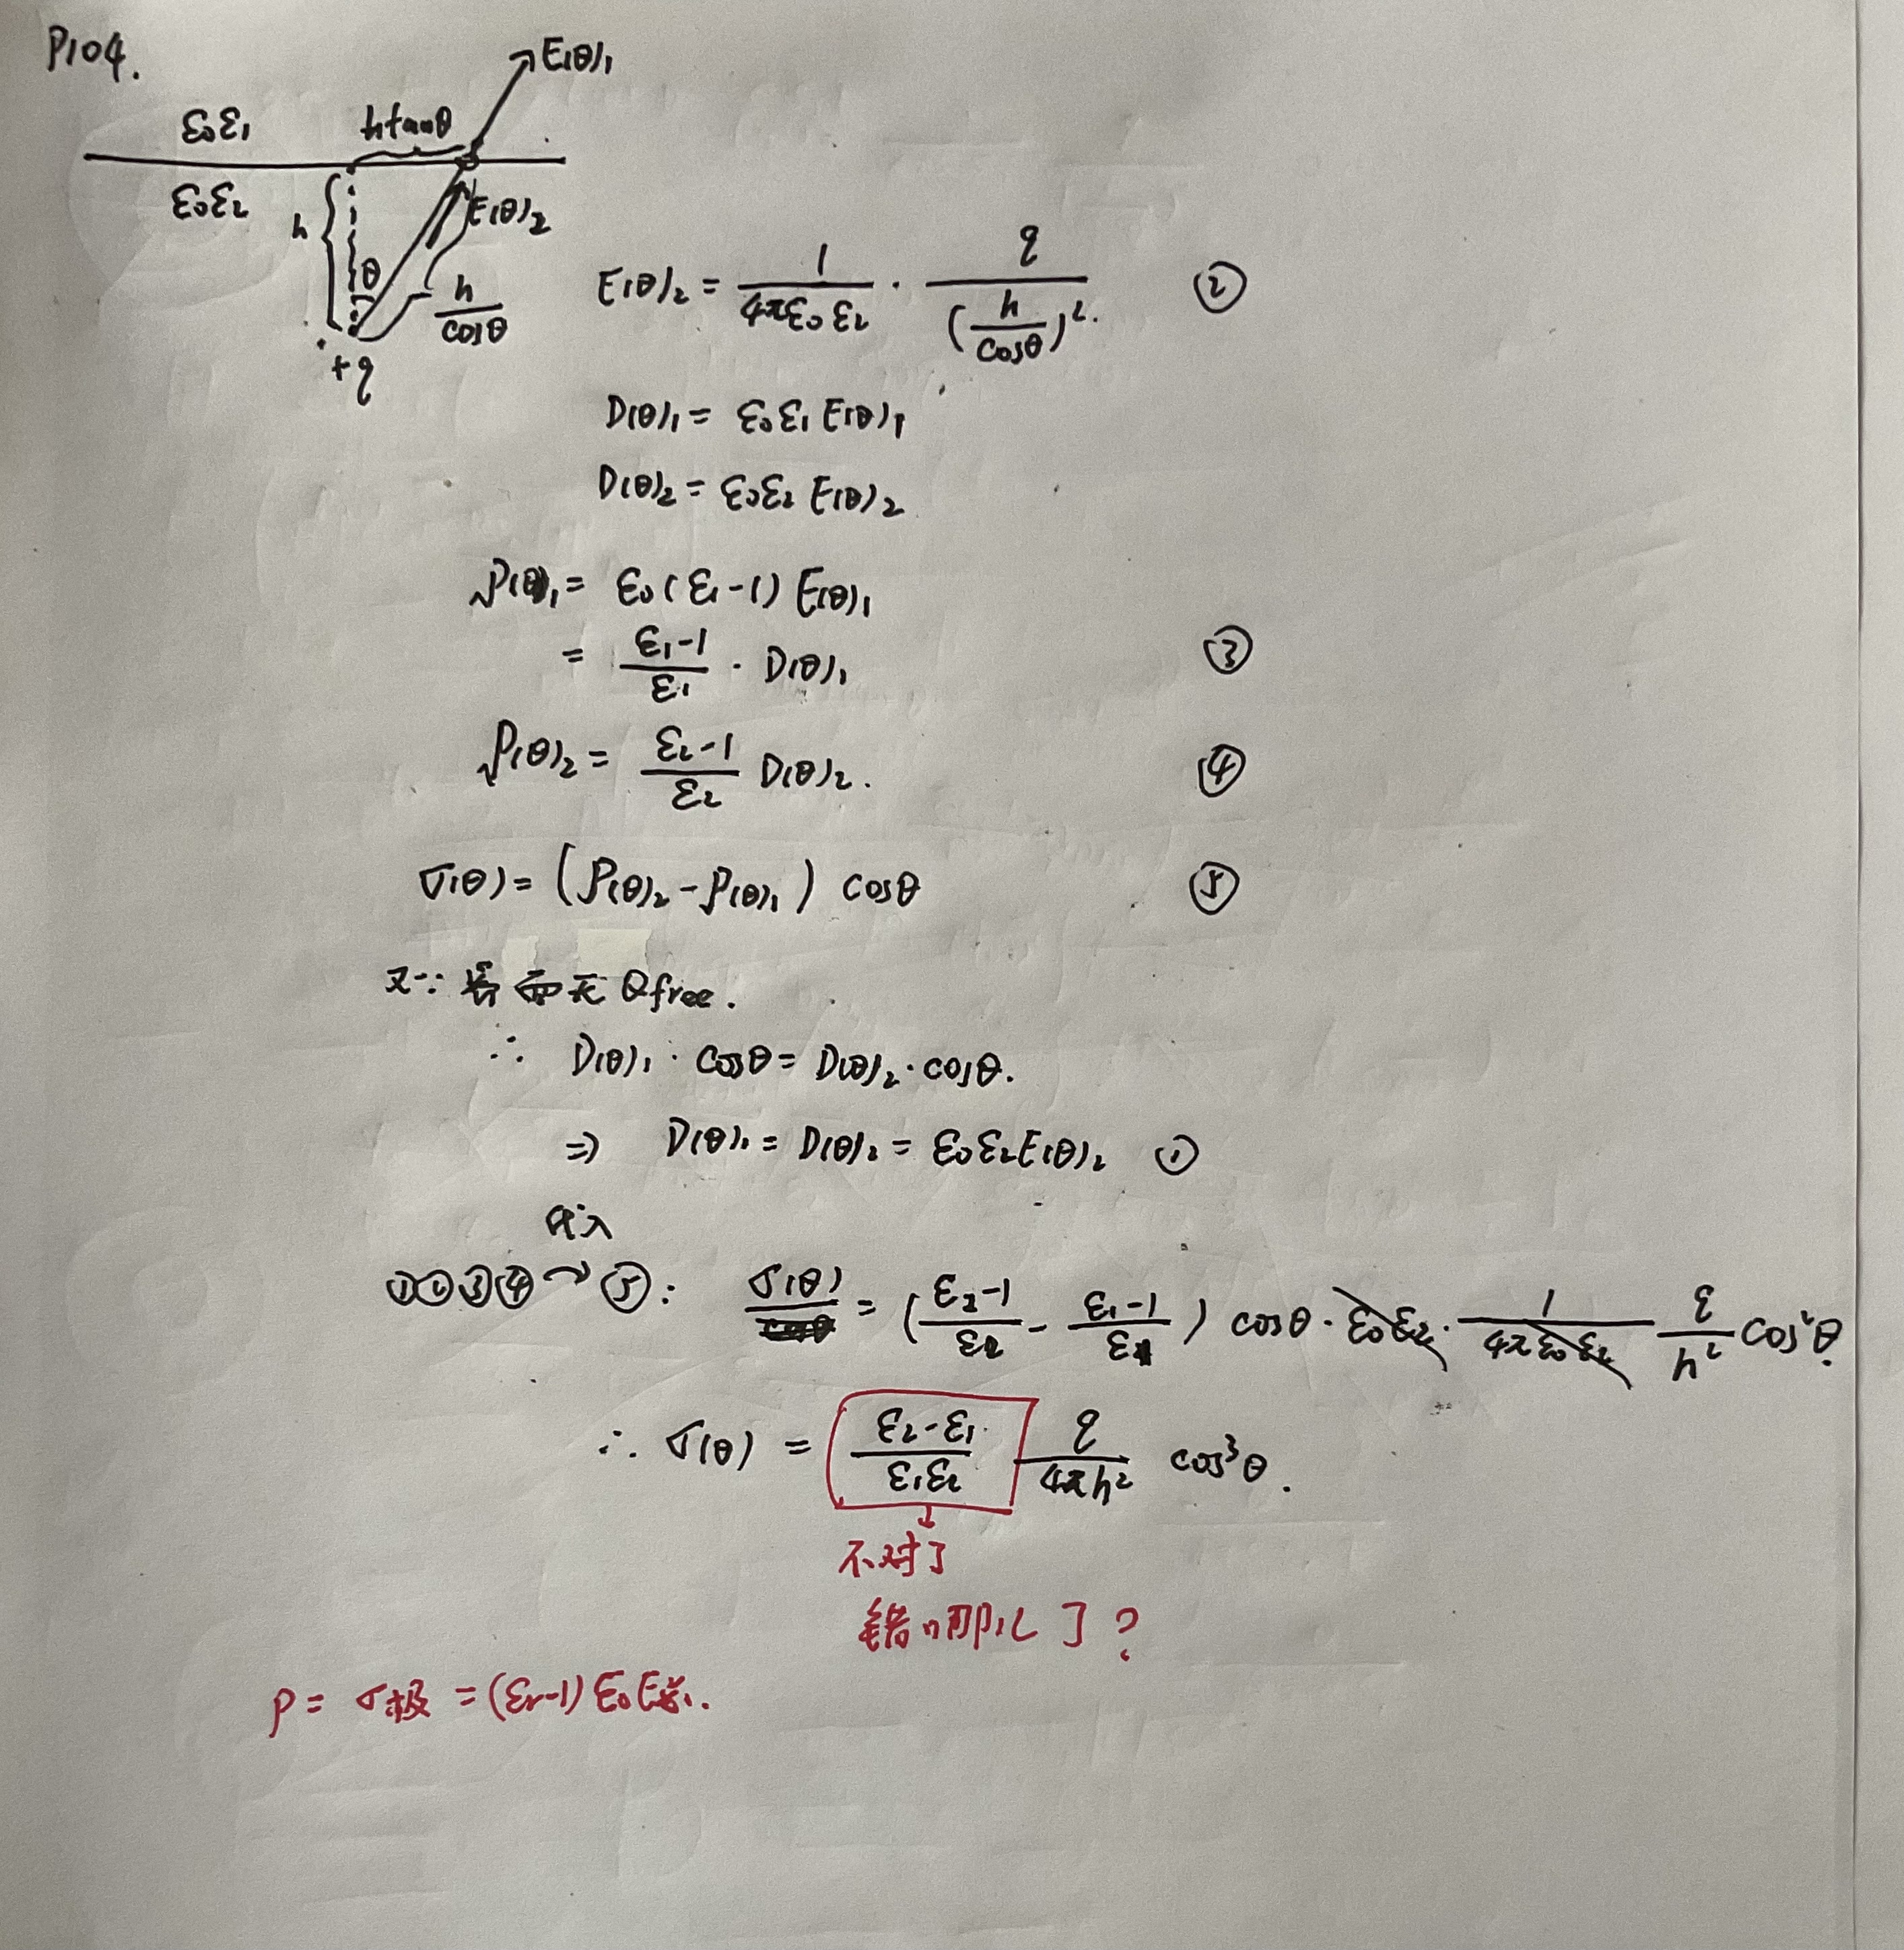 P104.
E(θ)₁
ε₀ε₁ htanθ
ε₀ε₂ h E(θ)₂
θ h/cosθ
+q
E(θ)₂ = 1/(4πε₀ε₂) · q/(h/cosθ)². ②
D(θ)₁ = ε₀ε₁E(θ)₁
D(θ)₂ = ε₀ε₂E(θ)₂
P(θ)₁ = ε₀(ε₁-1)E(θ)₁
= (ε₁-1)/ε₁ · D(θ)₁ ③
P(θ)₂ = (ε₂-1)/ε₂ D(θ)₂. ④
σ(θ) = (P(θ)₂ - P(θ)₁) cosθ ⑤
又∵ 界面无Qfree.
∴ D(θ)₁ · cosθ = D(θ)₂ · cosθ.
⇒ D(θ)₁ = D(θ)₂ = ε₀ε₂E(θ)₂ ①
代入
①②③④→⑤: σ(θ) = ((ε₂-1)/ε₂ - (ε₁-1)/ε₁) cosθ · ε₀ε₂ · 1/(4πε₀ε₂) q/h² cos²θ.
∴ σ(θ) = (ε₂-ε₁)/(ε₁ε₂) q/(4πh²) cos³θ.
不对了
错哪儿了?
P = σ极 = (εr-1)ε₀E总.